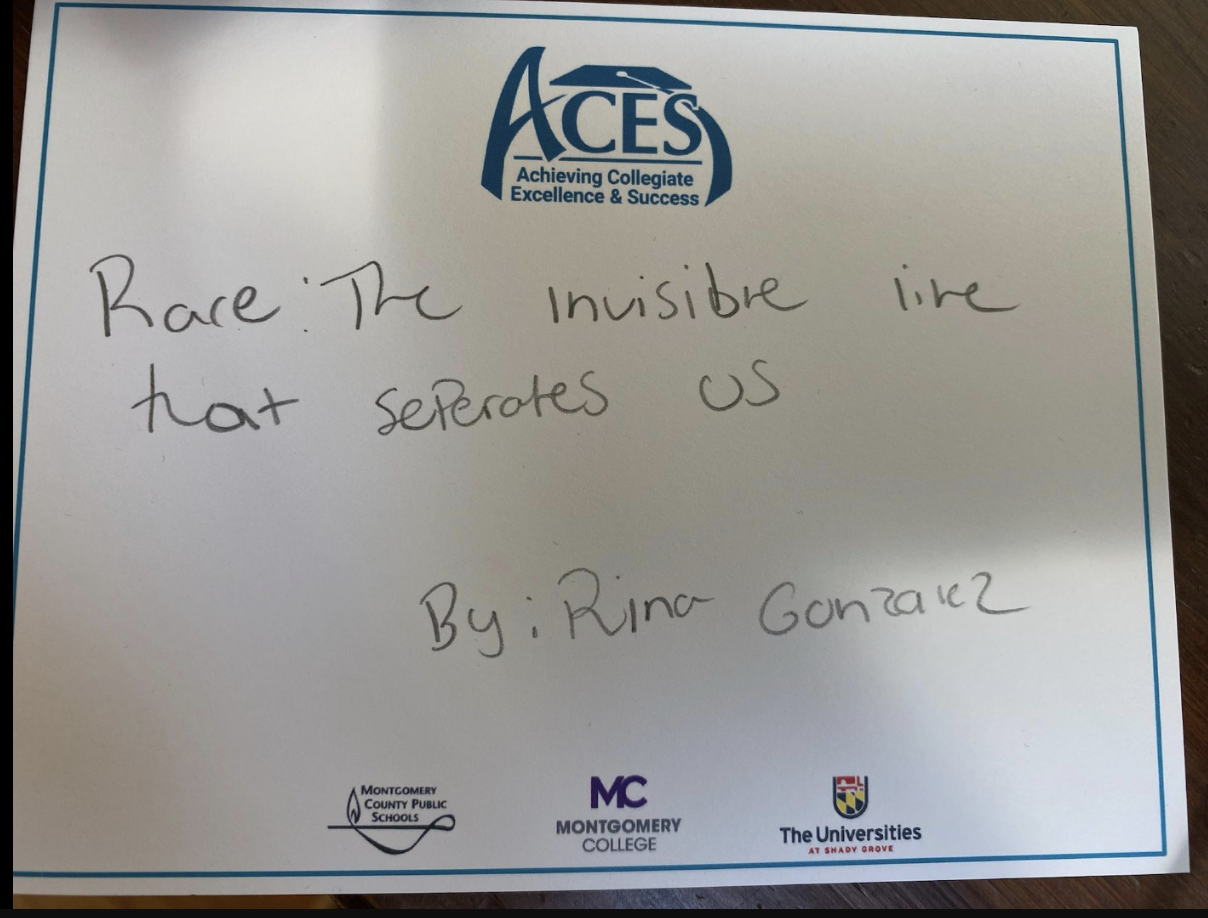 ACES
Achieving Collegiate
Excellence & Success
Race: The invisible line
that seperates us
By: Rina Gonzalez
MONTGOMERY
COUNTY PUBLIC
SCHOOLS
MC
MONTGOMERY
COLLEGE
The Universities
AT SHADY GROVE